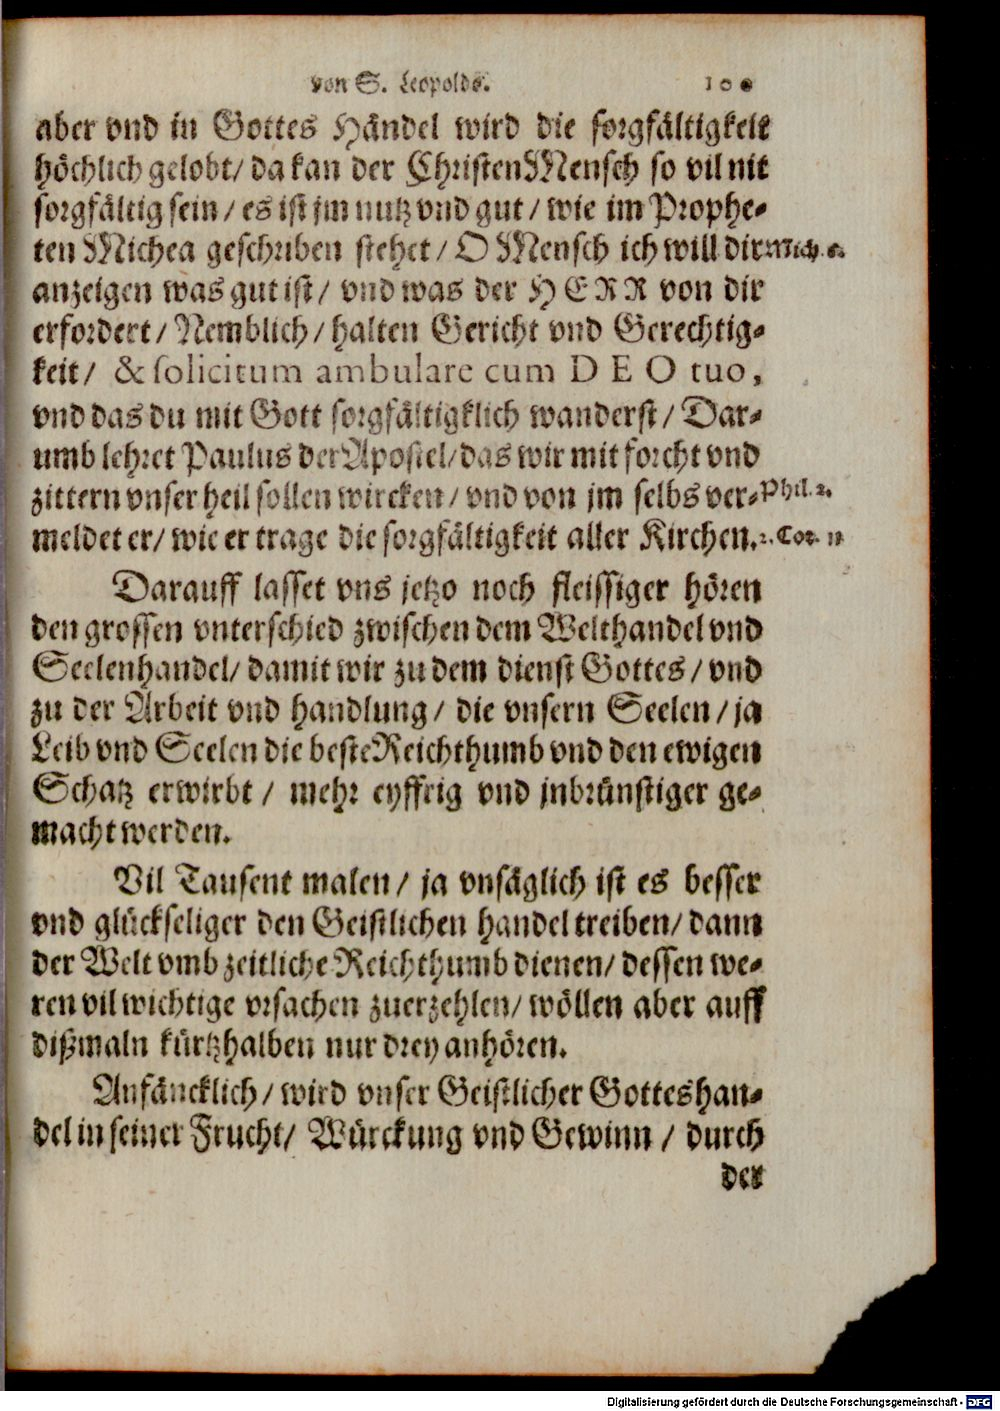 von S. Leopoldo.
aber vnd in Gottes Händel wird die sorgfältigkeit
höchlich gelobt/ da kan der Christen Mensch so vil nit
sorgfältig sein/ es ist jm nutz vnd gut/ wie im Prophe-
ten Michea geschriben stehet/ O Mensch ich will dir
anzeigen was gut ist/ vnd was der HERR von dir
erfordert/ Nemblich/ halten Gericht vnd Gerechtig-
keit/ & solicitum ambulare cum DEO tuo,
vnd das du mit Gott sorgfältigklich wanderst/ Dar-
umb lehret Paulus der Apostel/ das wir mit forcht vnd
zittern vnser heil sollen wircken/ vnd von jm selbs ver-
Phil. 2.
meldet er/ wie er trage die sorgfältigkeit aller Kirchen.
2. Cor. 11
Darauff lasset vns jetzo noch fleissiger hören
den grossen vnterschied zwischen dem Welthandel vnd
Seelenhandel/ damit wir zu dem dienst Gottes/ vnd
zu der Arbeit vnd handlung/ die vnsern Seelen/ ja
Leib vnd Seelen die beste Reichthumb vnd den ewigen
Schatz erwirbt/ mehr eyffrig vnd jnbrünstiger ge-
macht werden.
Vil Tausent malen/ ja vnsäglich ist es besser
vnd glückseliger den Geistlichen handel treiben/ dann
der Welt vmb zeitliche Reichthumb dienen/ dessen we-
ren vil wichtige vrsachen zuerzehlen/ wöllen aber auff
dißmaln kürtzhalben nur drey anhören.
Anfäncklich/ wird vnser Geistlicher Gotteshan-
del in seiner Frucht/ Würckung vnd Gewinn/ durch
der
Digitalisierung gefördert durch die Deutsche Forschungsgemeinschaft - DFG